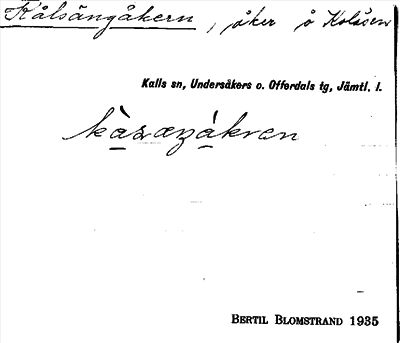 Kålsängåkern, åker å Kolåsen
Kalls sn, Undersåkers o. Offerdals tg, Jämtl. l.
kàsæŋákren
BERTIL BLOMSTRAND 1935